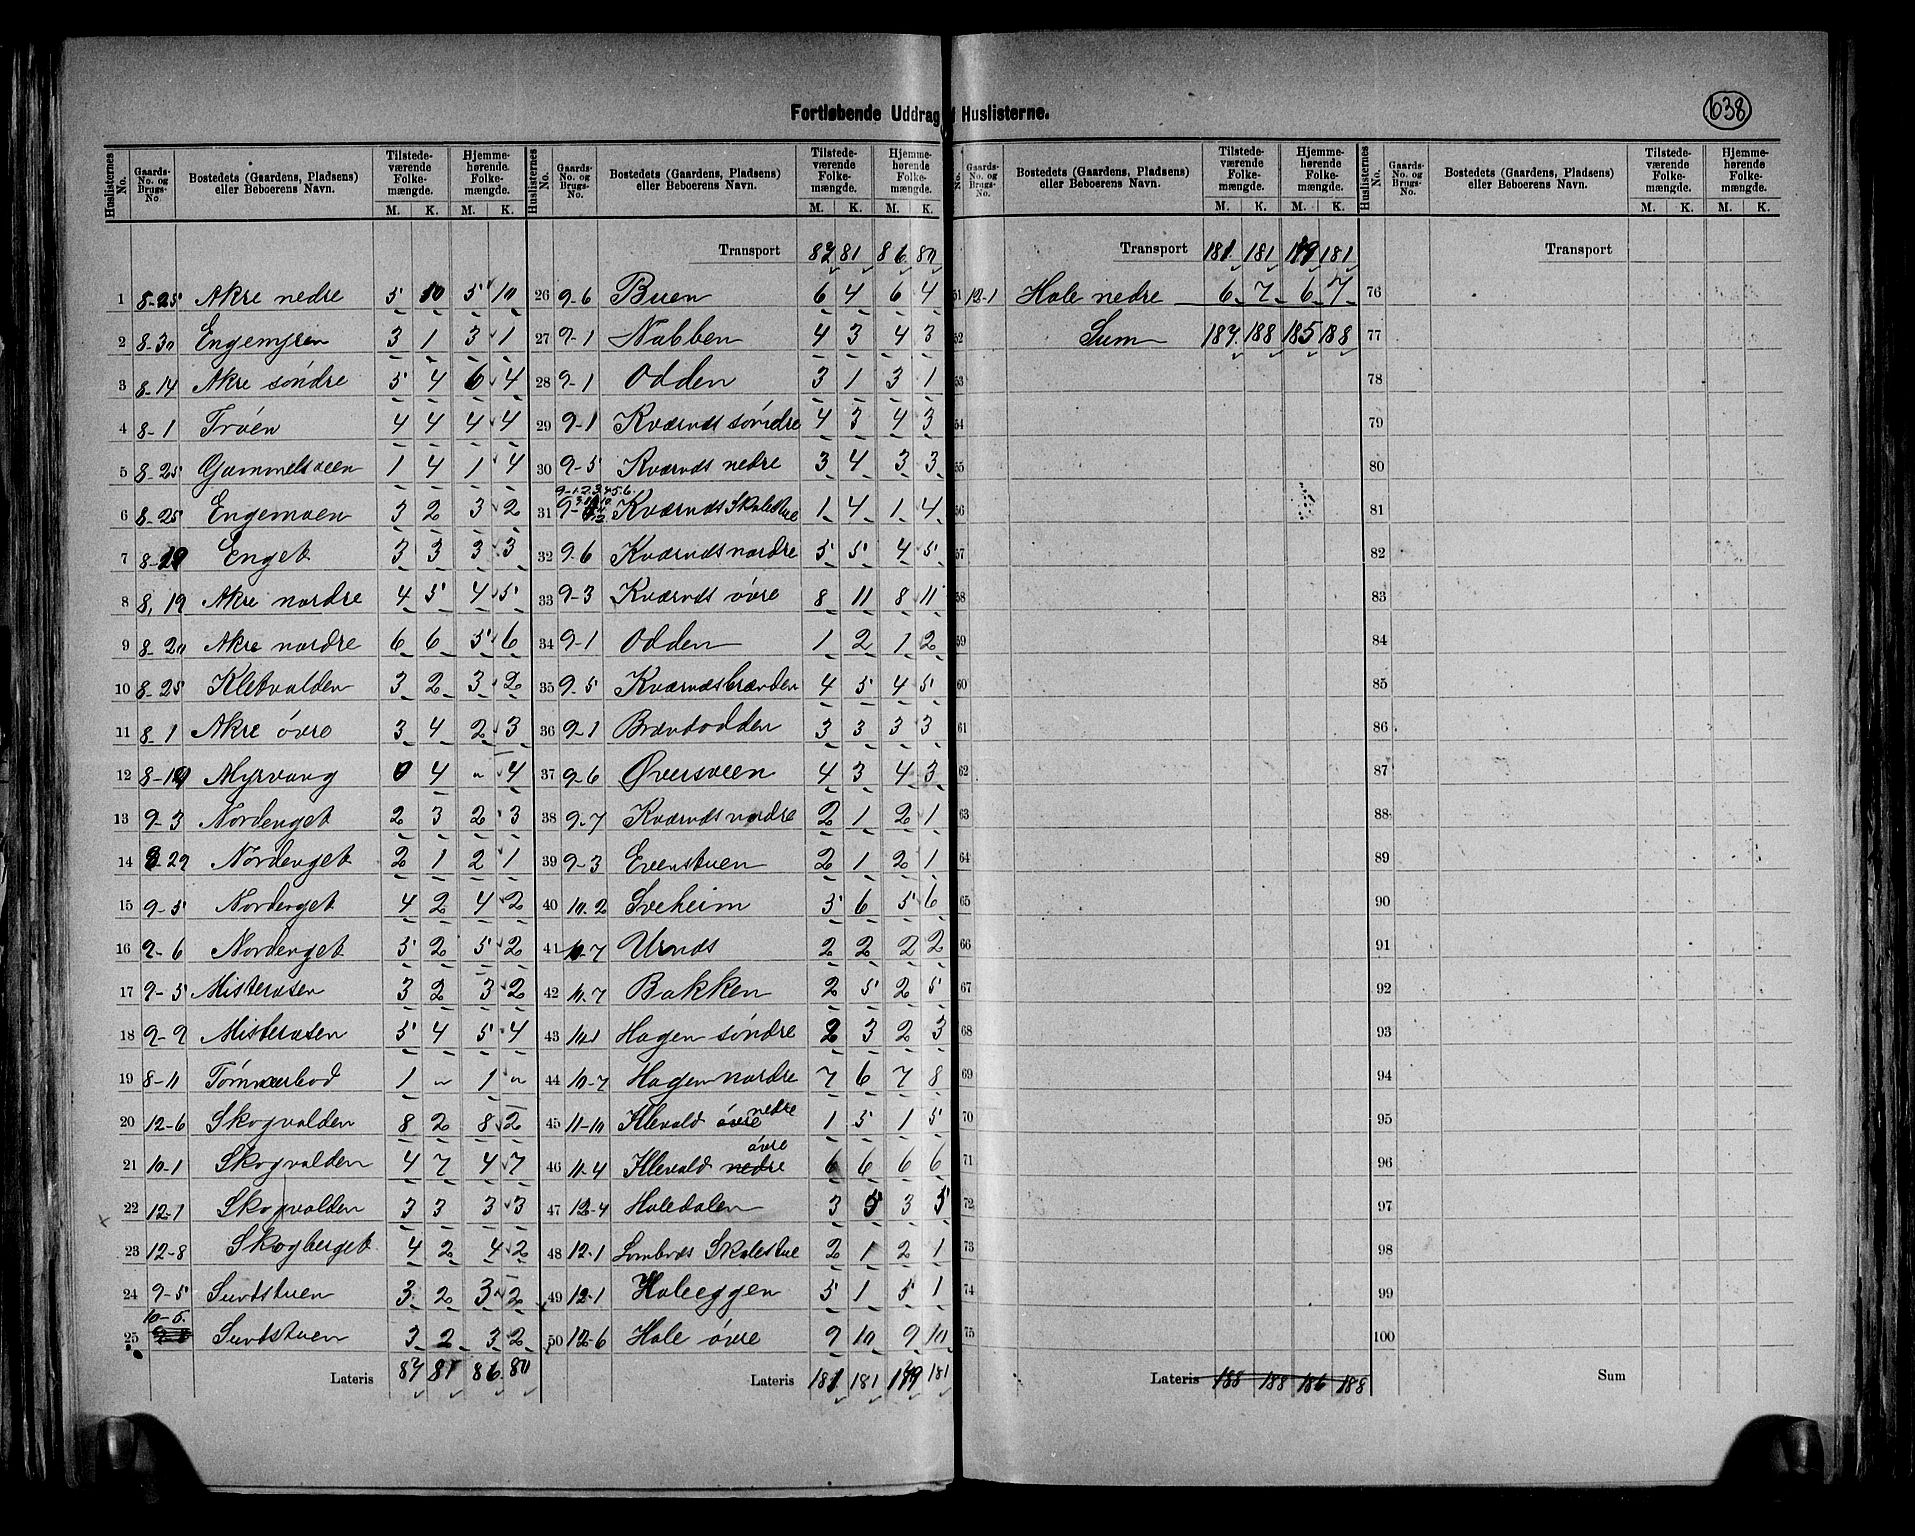 Fortløbende Uddrag af Huslisterne.
638
Huslisternes No. | Gaards-No. og Brugs-No. | Bostedets (Gaardens, Pladsens) eller Beboerens Navn. | Tilstedeværende Folkemængde. M. K. | Hjemmehørende Folkemængde. M. K.
1 8-25 Akre nedre 5 10 5 10
2 8-30 Engemyren 3 1 3 1
3 8-14 Akre söndre 5 4 6 4
4 8-1 Tröen 4 4 4 4
5 8-25 Gammelsveen 1 4 1 4
6 8-25 Engemoen 3 2 3 2
7 8-19 Enget 3 3 3 3
8 8, 19 Akre nordre 4 5 4 5
9 8-20 Akre nordre 6 6 5 6
10 8-25 Kletvolden 3 2 3 2
11 8-1 Akre övre 3 4 2 3
12 8-19 Myrvang 0 4 " 4
13 9-3 Nordenget 2 3 2 3
14 8-29 Nordenget 2 1 2 1
15 9-5 Nordenget 4 2 4 2
16 9-6 Nordenget 5 2 5 2
17 9-5 Misteråsen 3 2 3 2
18 9-9 Misteråsen 5 4 5 4
19 8-11 Tömmerbod 1 " 1 "
20 12-6 Skogvolden 8 2 8 2
21 10-1 Skogvolden 4 7 4 7
22 12-1 Skogvolden 3 3 3 3
23 12-8 Skogberget 4 2 4 2
24 9-5 Sundstuen 3 2 3 2
25 10-5. Sundstuen 3 2 3 2
Lateris 87 81 86 80
Huslisternes No. | Gaards-No. og Brugs-No. | Bostedets (Gaardens, Pladsens) eller Beboerens Navn. | Tilstedeværende Folkemængde. M. K. | Hjemmehørende Folkemængde. M. K.
Transport 87 81 86 80
26 9-6 Buen 6 4 6 4
27 9-1 Nabben 4 3 4 3
28 9-1 Odden 3 1 3 1
29 9-1 Kværnæs söndre 4 3 4 3
30 9-5 Kværnæs nedre 3 4 3 3
9-1.2.3.4.5.6
31 Kværnæs Skolestue 1 4 1 4
32 9-6 Kværnæs nordre 5 5 4 5
33 9-3 Kværnæs övre 8 11 8 11
34 9-1 Odden 1 2 1 2
35 9-5 Kværnæsbrænden 4 5 4 5
36 9-1 Brændodden 3 3 3 3
37 9-6 Øversveen 4 3 4 3
38 9-7 Kværnæs nordre 2 1 2 1
39 9-3 Evenstuen 2 1 2 1
40 10-2 Sveheim 5 6 5 6
41 10-7 Urnæs 2 2 2 2
42 10-7 Bakken 2 5 2 5
43 10-1 Hagen söndre 2 3 2 3
44 10-7 Hagen nordre 7 6 7 8
45 11-10 Klevold övre nedre 1 5 1 5
46 11-4 Klevold nedre övre 6 6 6 6
47 12-4 Holedalen 3 5 3 5
48 12-1 Lombnæs Skolestue 2 1 2 1
49 12-1 Holeeggen 5 1 5 1
50 12-6 Hole övre 9 10 9 10
Lateris 181 181 179 181
No. | Gaards-No. og Brugs-No. | Bostedets (Gaardens, Pladsens) eller Beboerens Navn. | Tilstedeværende Folkemængde. M. K. | Hjemmehørende Folkemængde. M. K.
Transport 181 181 179 181
51 12-1 Hole nedre 6 7 6 7
52 Sum 187 188 185 188
53
54
55
56
57
58
59
60
61
62
63
64
65
66
67
68
69
70
71
72
73
74
75
Lateris 188 188 186 188
Huslisternes No. | Gaards-No. og Brugs-No. | Bostedets (Gaardens, Pladsens) eller Beboerens Navn. | Tilstedeværende Folkemængde. M. K. | Hjemmehørende Folkemængde. M. K.
Transport
76
77
78
79
80
81
82
83
84
85
86
87
88
89
90
91
92
93
94
95
96
97
98
99
100
Sum